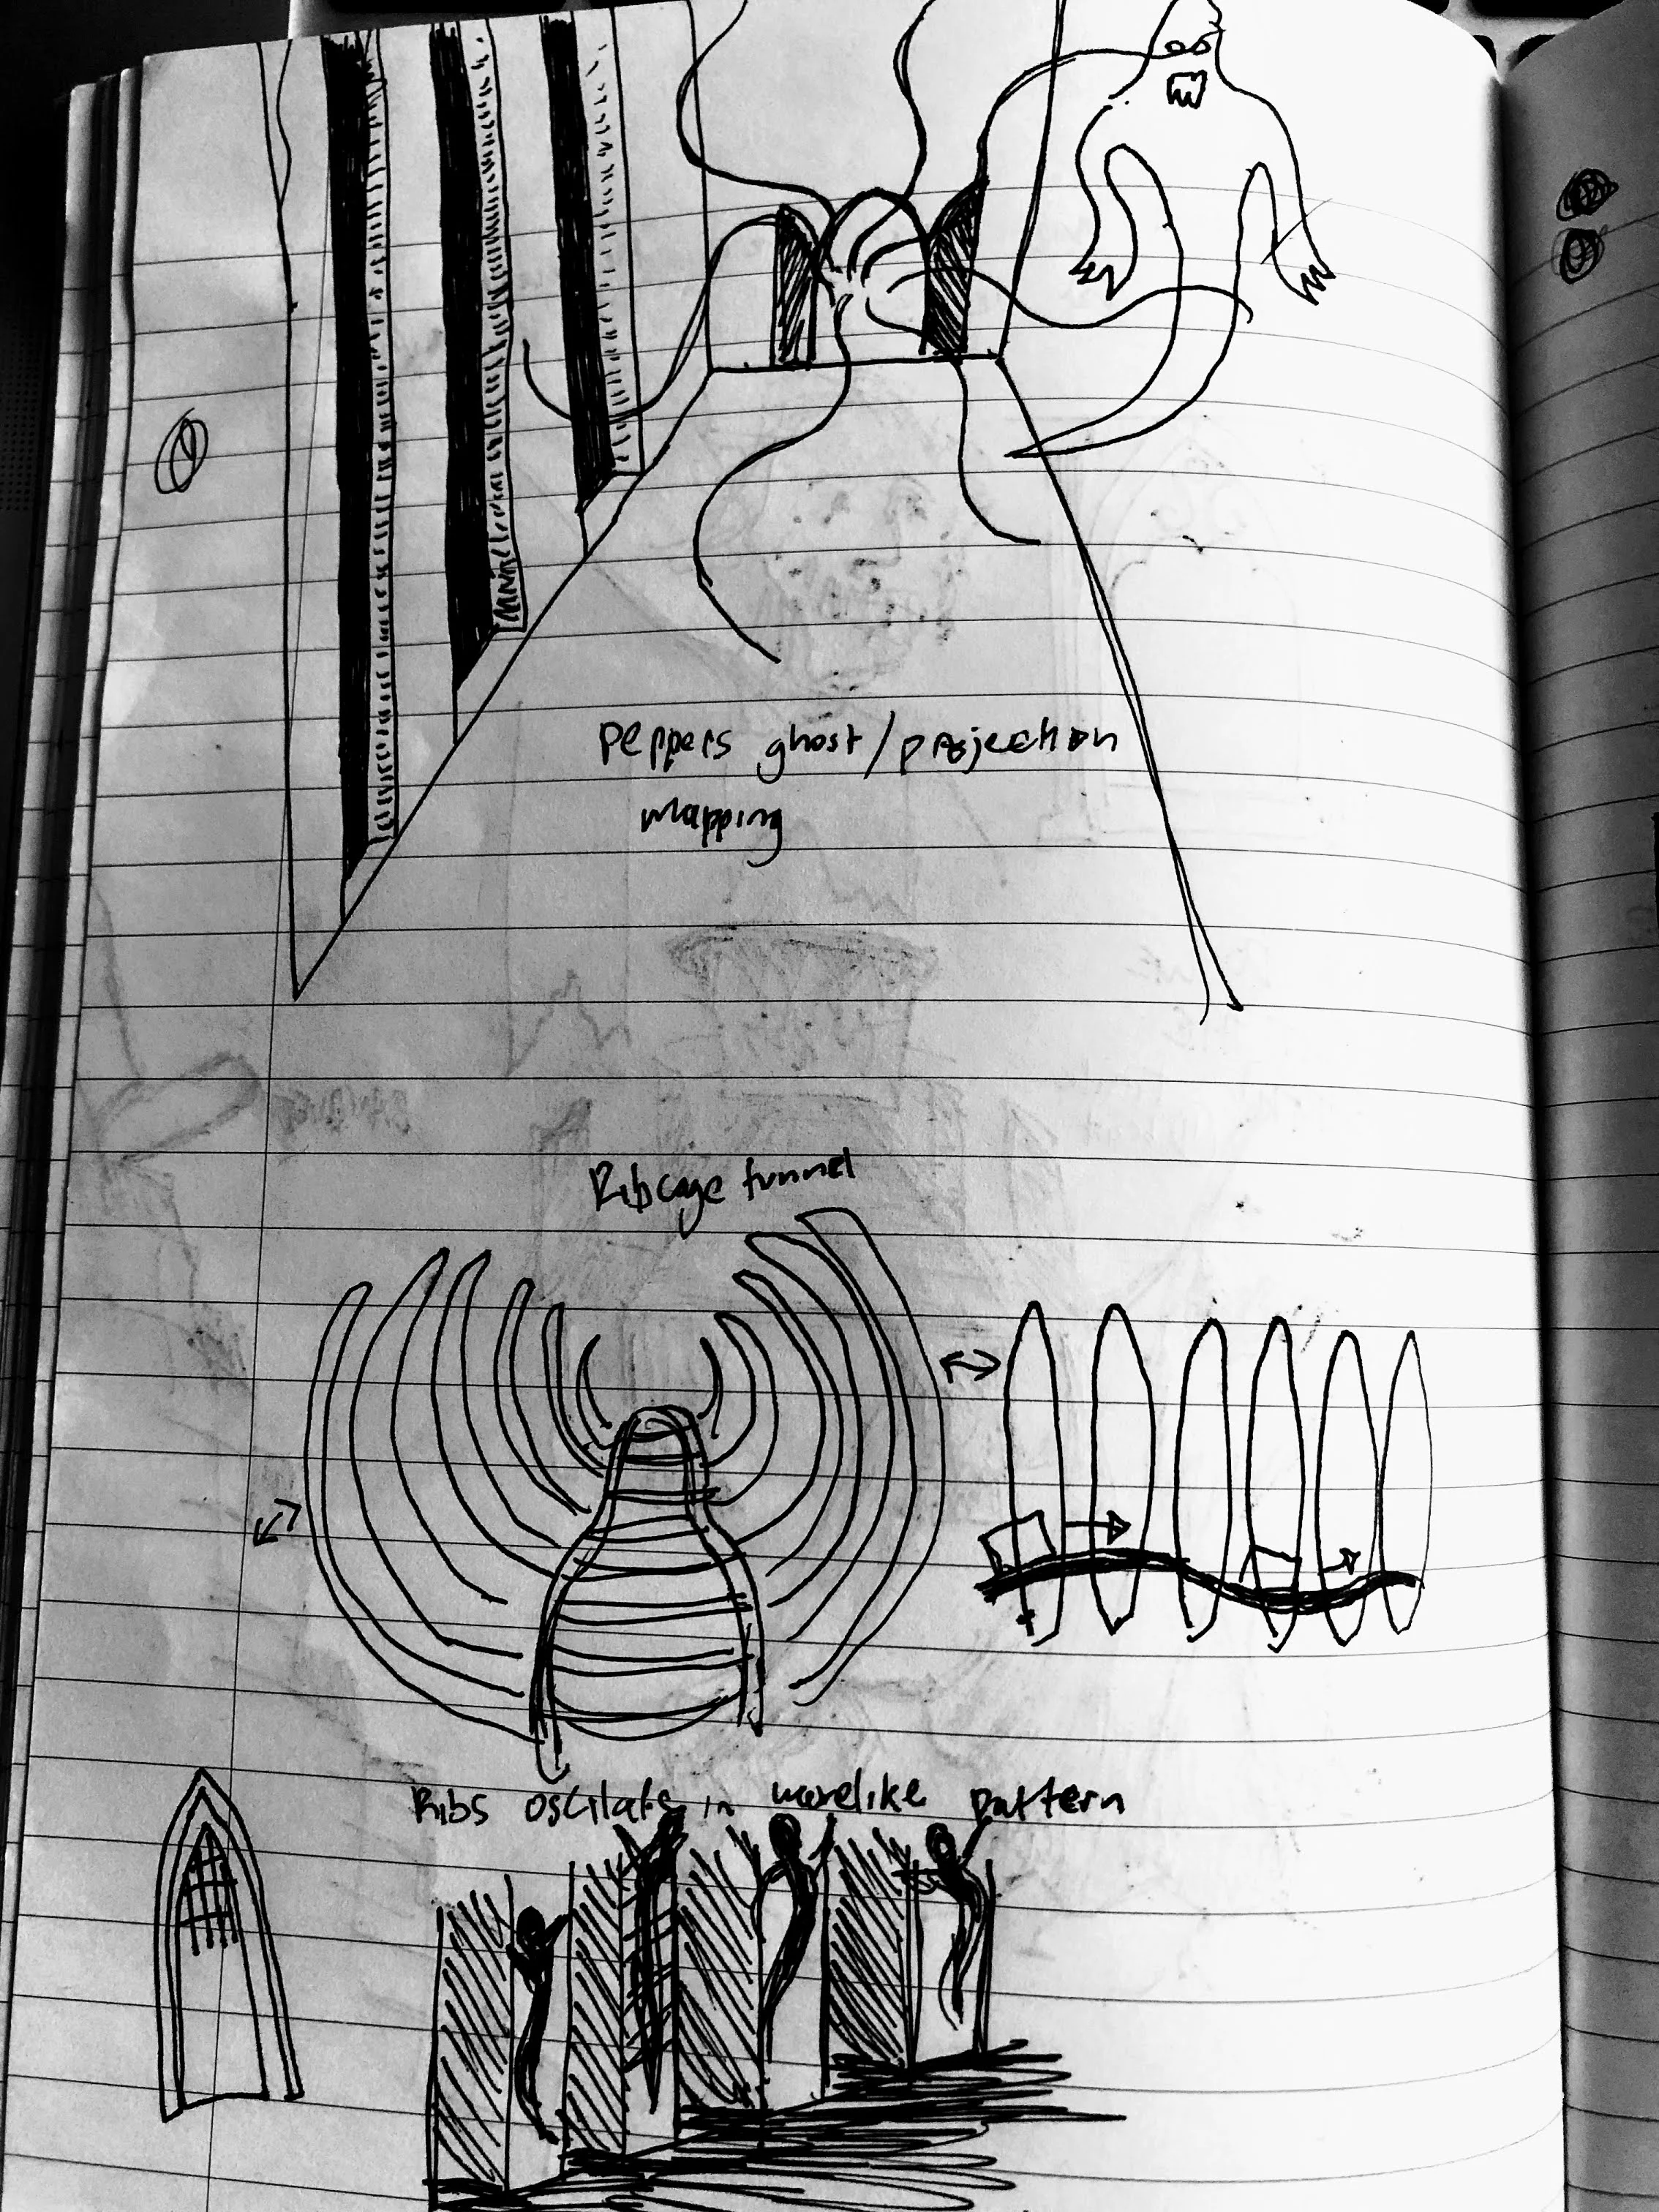 peppers ghost/projection
mapping
Ribcage tunnel
Ribs oscilate in wavelike pattern